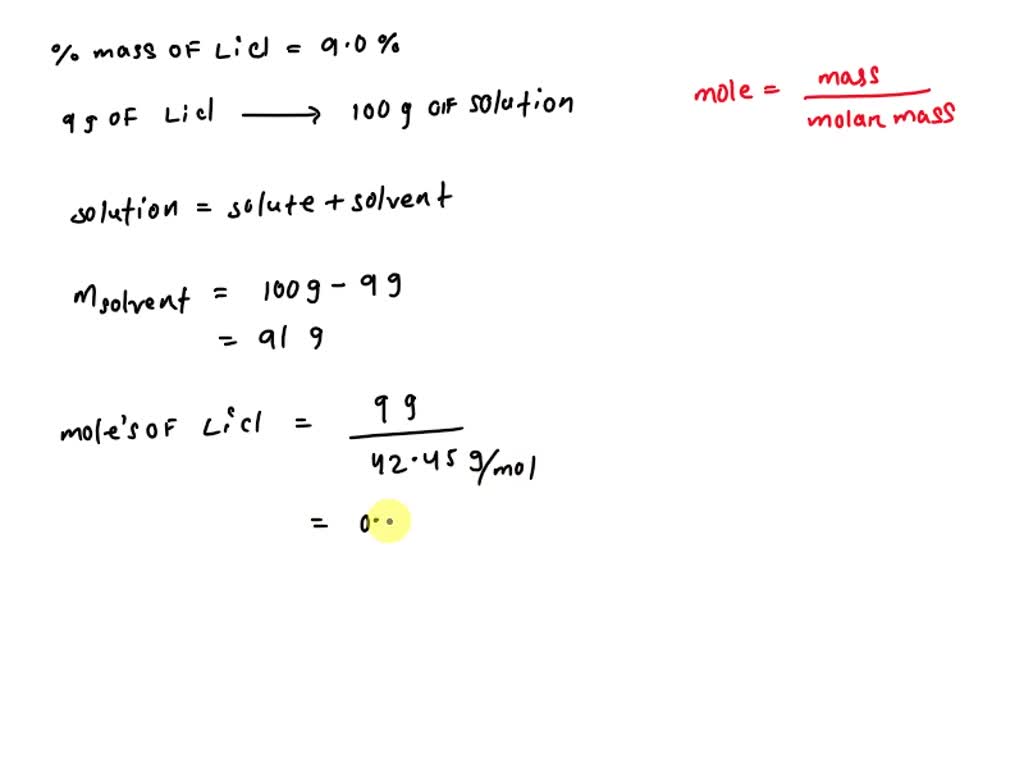 % mass OF Licl = 9.0 %
9 g OF Licl ⟶ 100 g OF solution
mole = mass / molar mass
solution = solute + solvent
msolvent = 100 g - 9 g
= 91 g
mole's OF Licl = 9 g / 42.45 g/mol
= 0.